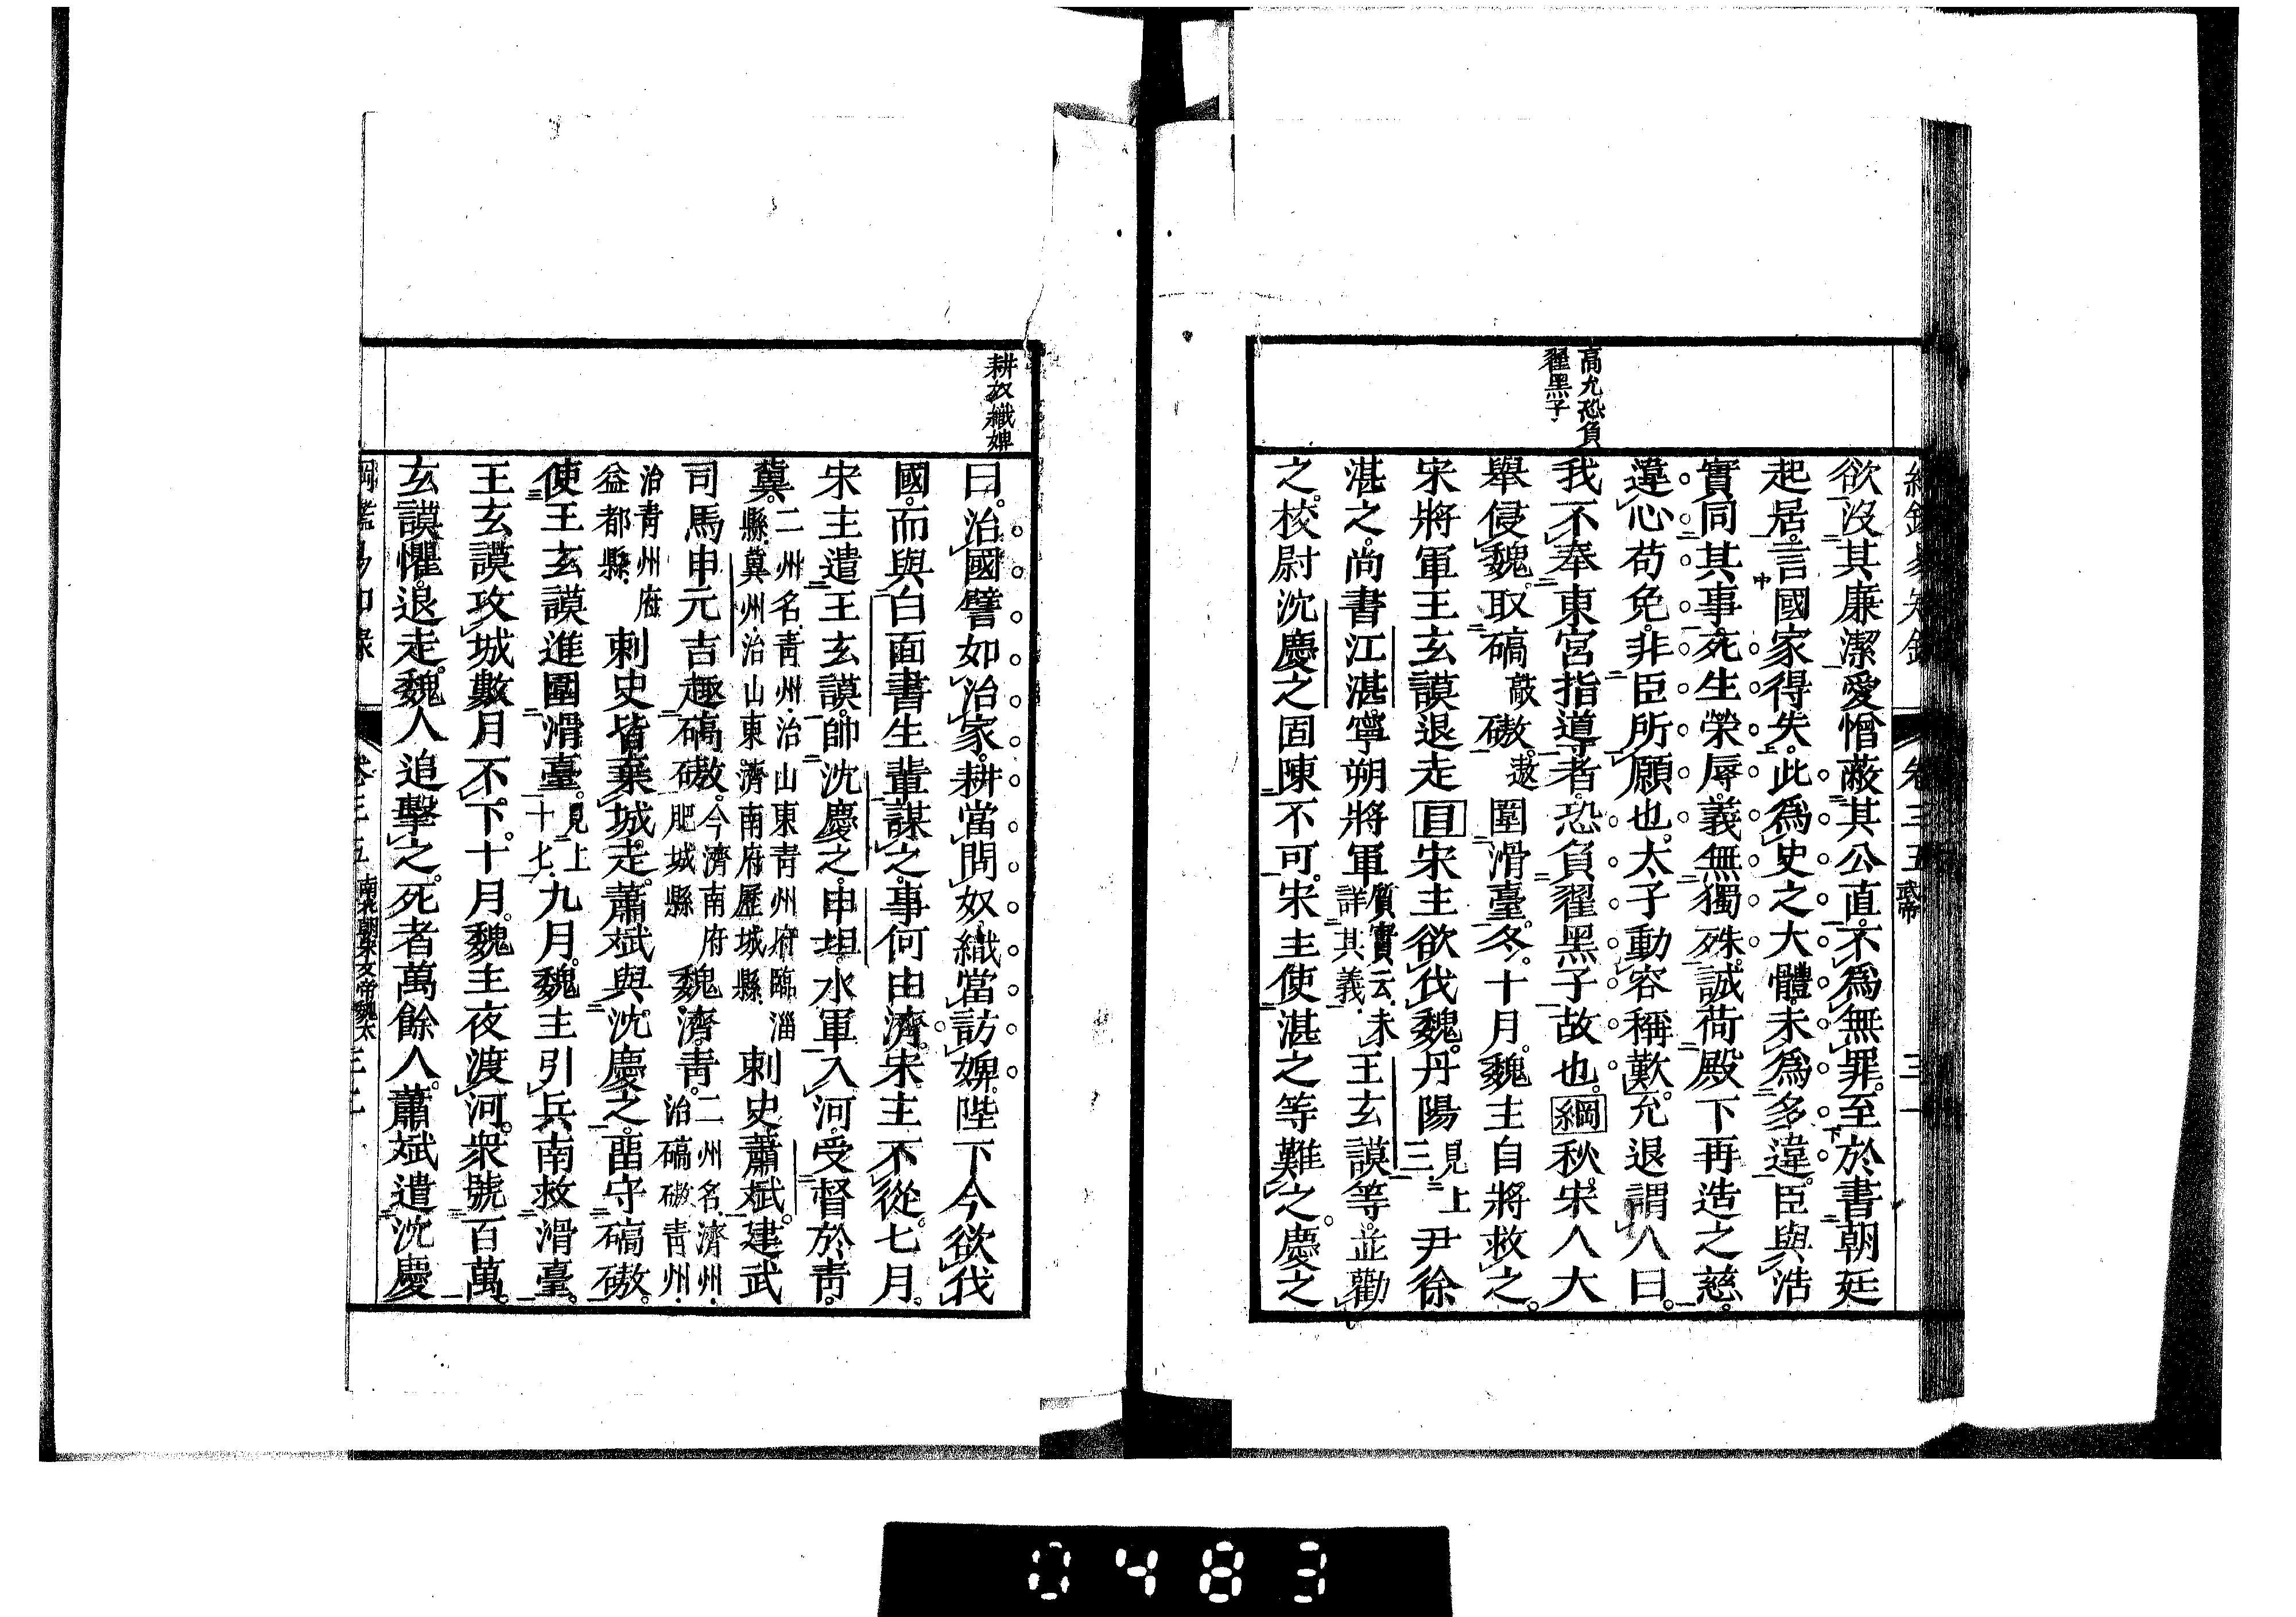 高允恐負
翟黑子
卷三五
武帝
三一
欲沒其廉潔愛憎蔽其公直。不爲無罪。至於書朝廷
起居。言國家得失。此爲史之大體。未爲多違。臣與浩
實同其事。死生榮辱。義無獨殊。誠荷殿下再造之慈。
違心苟免。非臣所願也。太子動容稱歎。允退謂人曰。
我不奉東宮指導者。恐負翟黑子故也。綱秋。宋人大
舉侵魏。取碻敲磝。遨圍滑臺。冬。十月。魏主自將救之。
宋將軍王玄謨退走目宋主欲伐魏。丹陽見上三尹徐
湛之。尚書江湛。寧朔將軍質實云。未詳其義。王玄謨等。並勸
之。校尉沈慶之固陳不可。宋主使湛之等難之。慶之
耕奴織婢
曰。治國譬如治家。耕當問奴。織當訪婢。陛下今欲伐
國。而與白面書生輩謀之。事何由濟。宋主不從。七月。
宋主遣王玄謨。帥沈慶之。申坦。水軍入河。受督於青。
冀。二州名。青州。治山東青州府臨淄縣。冀州。治山東濟南府歷城縣。刺史蕭斌。建武
司馬申元吉趣碻磝。今濟南府肥城縣魏濟。青。二州名。濟州。治碻磝。青州。
治青州府益都縣。刺史皆棄城走。蕭斌與沈慶之。畱守碻磝。
使王玄謨進圍滑臺。見上十七。九月。魏主引兵南救滑臺。
王玄謨攻城數月不下。十月。魏主夜渡河。衆號百萬。
玄謨懼。退走。魏人追擊之。死者萬餘人。蕭斌遣沈慶
南北朝宋文帝魏太
0483